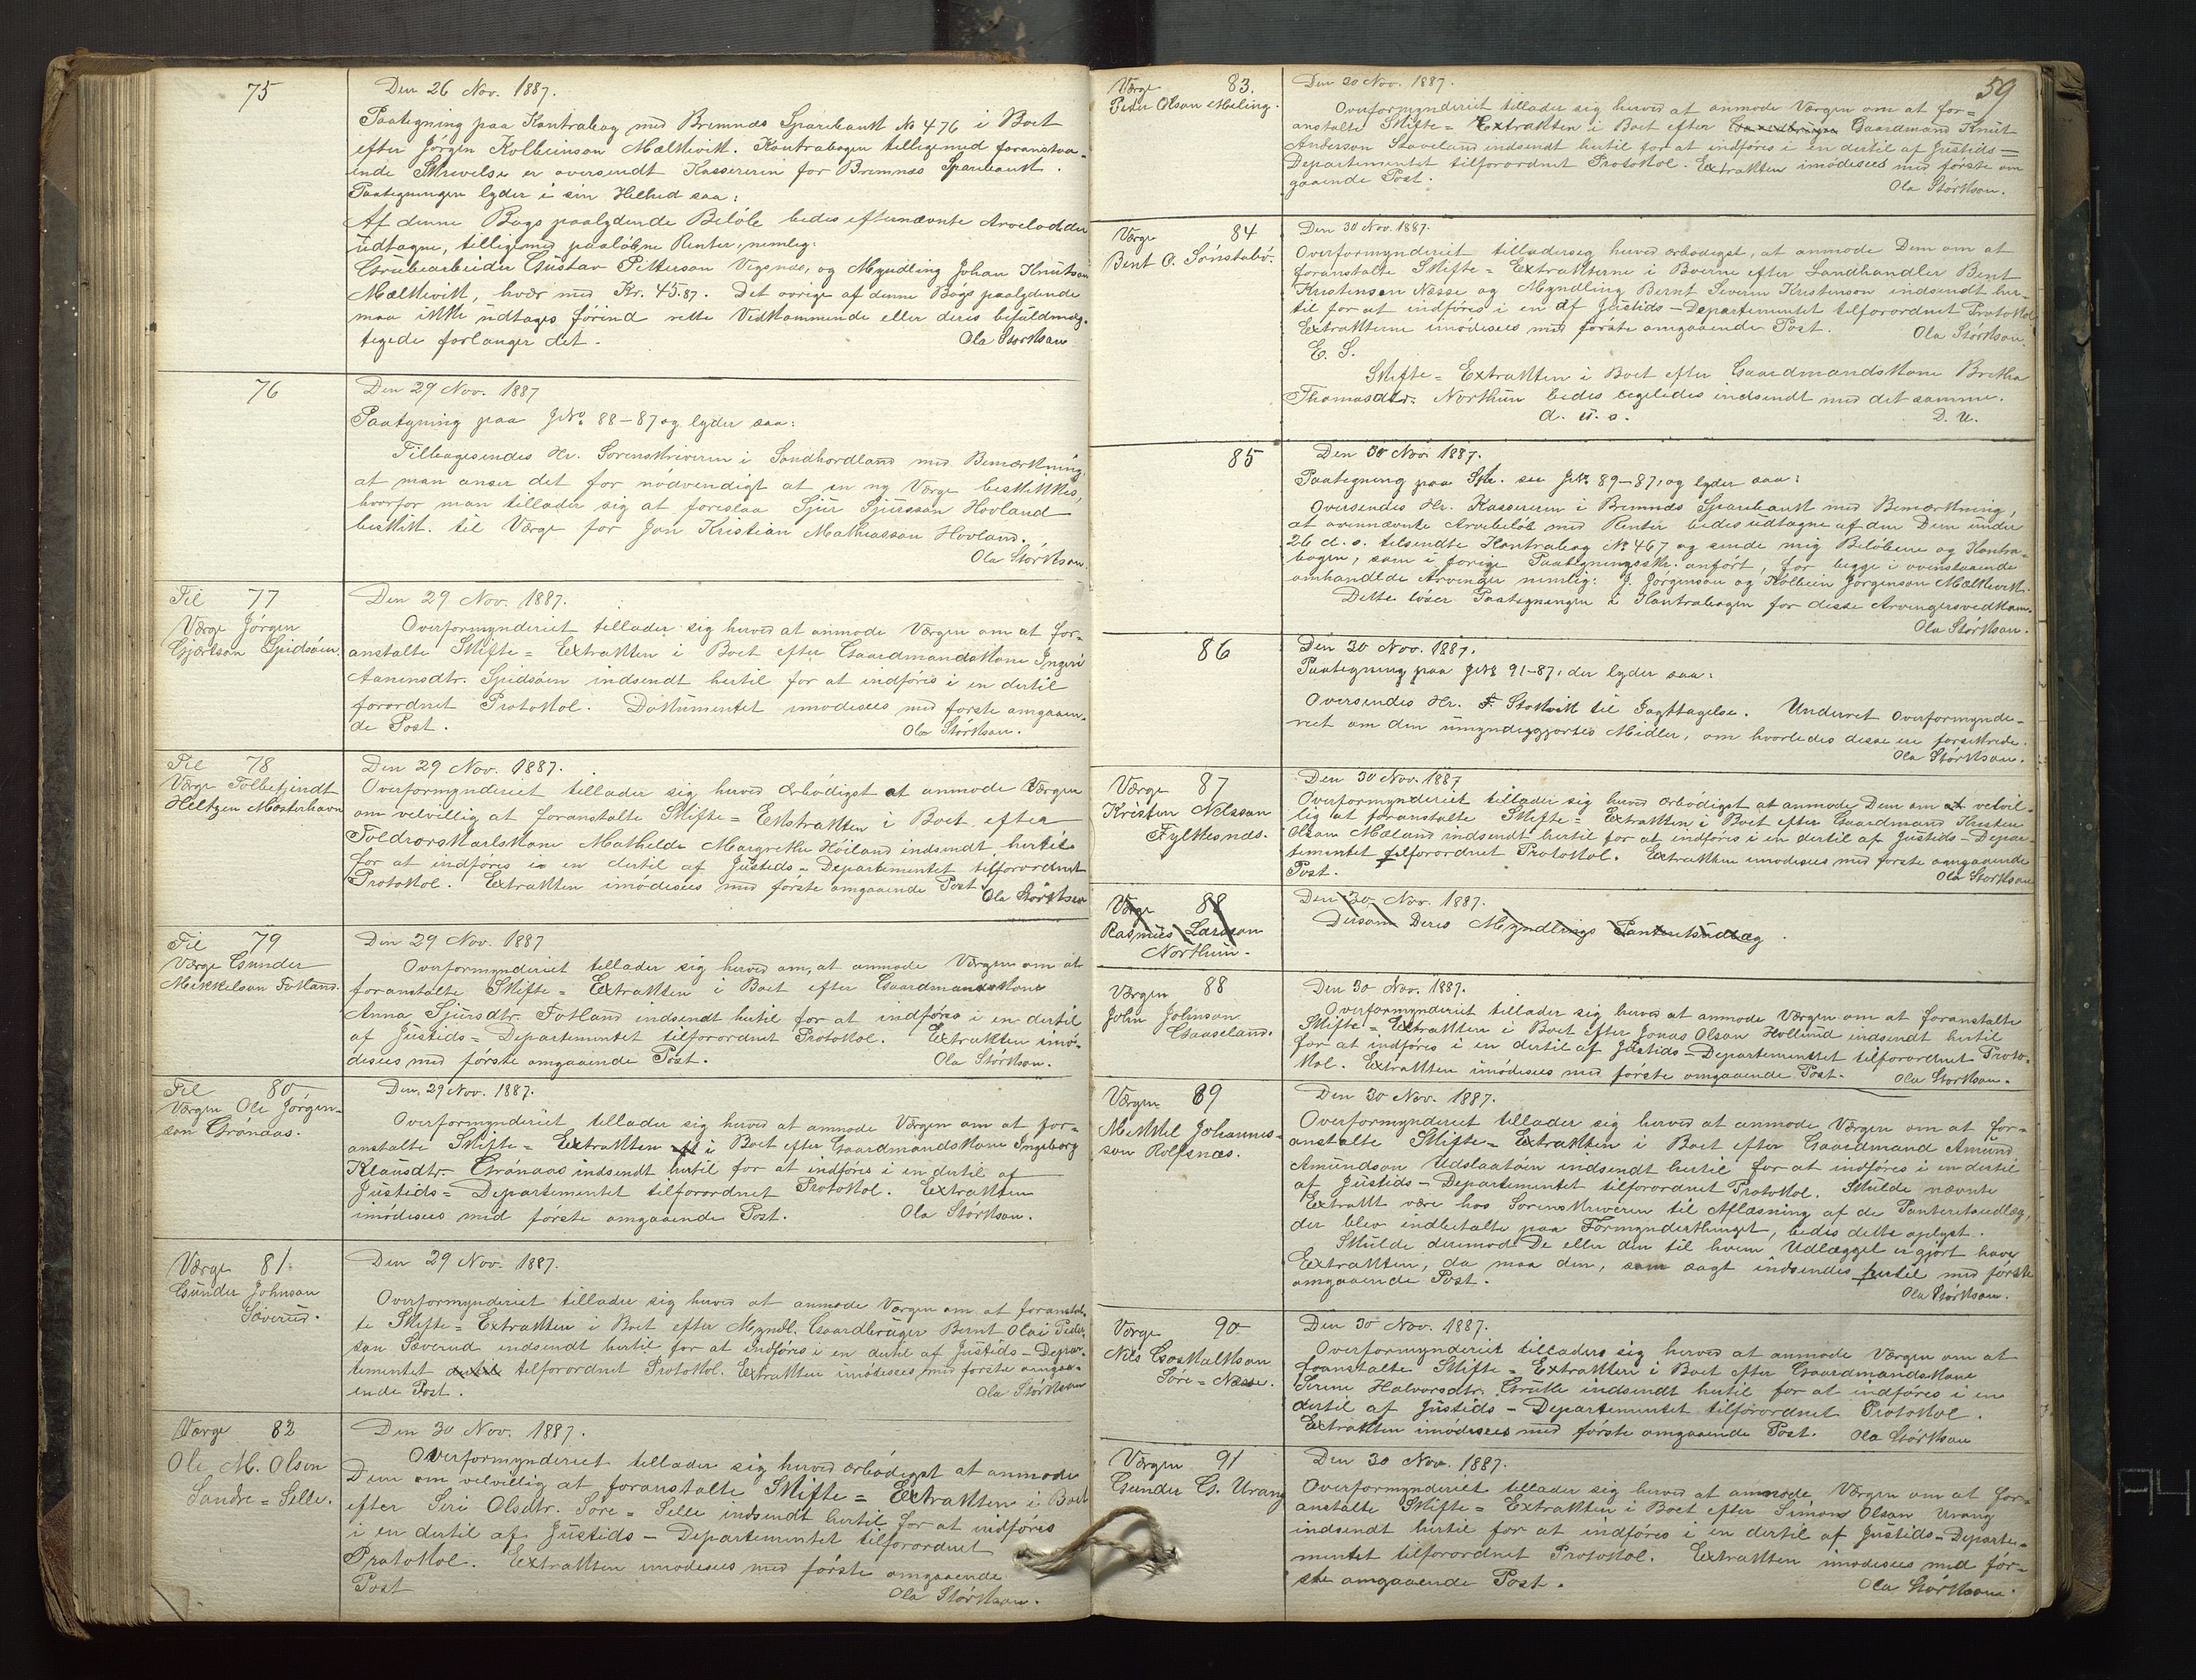 75
Den 26 Nov. 1887.
Paategning paa Kontrabog med Bremnæs Sparebank № 476 i Boet
efter Jörgen Kolbeinson Mælkevik. Kontrabogen tilligemed foranstaa-
ende Skrivelse er oversendt Kassereren for Bremnæs Sparebank.
Paategningen lyder i sin Helhed saa:
Af denne Bogs paalydende Belöb bedes efternævnte Arvelodder
udtagne, tilligemed paalöbne Renter, nemlig:
Grubearbeider Gustav Pitterson Vigsnæs, og Myndling Johan Knutson
Mælkevik, hver med Kr. 45.87. Det övrige af denne Bogs paalydende
maa ikke udtages förind rette Vedkommende eller deres befuldmæg-
tigede forlanger det.
Ola Störkson
76
Den 29 Nov. 1887
Paategning paa J№ 88-87 og lyder saa:
Tilbagesendes Hr. Sorenskriveren i Söndhordland med Bemærkning,
at man anser det for nödvendigt at en ny Værge beskikkes,
hvorfor man tillader sig at foreslaa Sjur Sjursson Hovland
beskikk. til Værge for Jon Kristian Mathiasson Hovland.
Ola Störkson.
Til 77
Værge Jörgen
Gjertson Spidsöen.
Den 29 Nov. 1887.
Overformynderiet tillader sig herved at anmode Værgen om at for-
anstalte Skifte = Extrakten i Boet efter Gaardmandskone Ingeri
Aanensdtr. Spidsöen indsendt hertil for at indföres i en dertil
forordnet Protokol. Dokumentet imödesees med förste omgaaen-
de Post.
Ola Störkson.
Til 78
Værge Tolbetjendt
Hiltzen Mosterhavn
Den 29 Nov. 1887.
Overformynderiet tillader sig herved ærbödigst at anmode Værgen
om velvillig at foranstalte Skifte = Ekstrakten i Boet efter
Toldrorskarlskone Mathilde Margrethe Höiland indsendt hertil
for at indföres i en dertil af Justids = Departementet tilforordnet
Protokol. Extrakten imödesees med förste omgaaende Post.
Ola Störkson
Til 79
Værge Gunder
Mikkelson Totland.
Den 29 Nov. 1887
Overformynderiet tillader sig herved om, at anmode Værgen om at
foranstalte Skifte = Extrakten i Boet efter Gaardmandskone
Anna Sjursdtr. Totland indsendt hertil for at indföres i en dertil
af Justids = Departementet tilforordnet Protokol. Extrakten imö-
desees med förste omgaaende Post.
Ola Störkson.
Til 80
Værgen Ole Jörgen-
son Grönaas.
Den, 29 Nov. 1887.
Overformynderiet tillader sig herved at anmode Værgen om at for-
anstalte Skifte = Extrakten i Boet efter Gaardmandskone Ingeborg
Klausdtr. Grönaas indsendt hertil for at indföres i en dertil af
Justids = Departementet tilforordnet Protokol. Extrakten
imödesees med förste omgaaende Post.
Ola Störkson.
Værge 81.
Gunder Johnson
Säverud.
Den 29 Nov. 1887.
Overformynderiet tillader sig herved at anmode Værgen om at foranstal-
te Skifte = Extrakten i Boet efter Myndl. Gaardbruger Bernt Olai Peder-
son Säverud indsendt hertil for at indföres i en dertil af Justids - Depar-
tementet dertil tilforordnet Protokol. Extrakten imödesees med förste omgaa-
ende Post.
Ola Störkson
Værge 82
Ole M. Olson
Söndre = Selle.
Den 30 Nov. 1887.
Overformynderiet tillader sig herved ærbödigst at anmode
Dem om velvillig at foranstalte Skifte = Extrakten i Boet
efter Siri Olsdtr. Söre = Selle indsendt hertil for at indföres
i en dertil af Justids - Departementet tilforordnet
Protokol. Extrakten imödesees med förste omgaaende
Post
Ola Störkson.
59
Værge 83.
Peter Olson Meling.
Den 30 Nov. 1887.
Overformynderiet tillader sig herved at anmode Værgen om at for-
anstalte Skifte = Extrakten i Boet efter Gaardbruger Gaardmand Knut
Anderson Staveland indsendt hertil for at indföres i en dertil af Justids =
Departementet tilforordnet Protokol. Extrakten imödesees med förste om
gaaende Post.
Ola Störkson.
Værge 84
Bent O. Sönstabö.
Den 30 Nov. 1887.
Overformynderiet tilladersig herved ærbödigst, at anmode Dem om at
foranstalte Skifte = Extrakterne i Boerne efter Landhandler Bent
Kristenson Næsse og Myndling Bernt Severin Kristenson indsendt her-
til for at indföres i en af Justids - Departementet tilforordnet Protokol
Extrakterne imödesees med förste omgaaende Post.
Ola Störkson.
E. S.
Skifte = Extrakten i Boet efter Gaardmandskone Bretha
Thomasdtr. Northun bedes ligeledes indsendt med det samme.
d. u. s.
D. U.
85
Den 30 Nov. 1887.
Paategning paa Skr. see J№ 89-87, og lyder saa:
Oversendes Hr. Kassereren i Bremnæs Sparebank med Bemærkning,
at ovennævnte Arvebelöb med Renter bedes udtagne af den Dem under
26 d. s. tilsendte Kontrabog № 467 og sende mig Belöbene og Kontra-
bogen, som i forige Paategningsskr. anfört, for begge i ovenstaaende
omhandlede Arvinger nemlig: J. Jörgenson og Kolbein Jörgenson Mælkevik.
Dette löser Paategningen i Kontrabogen for disse Arvingersvedkom.
Ola Störkson.
86
Den 30 Nov. 1887.
Paategning paa J№ 91-87, der lyder saa:
Oversendes Hr. F. Stokvik til Iagttagelse. Underret Overformynde-
riet om den umyndiggjortes Midler, om hvorledes disse ere forsikrede.
Ola Störkson.
Værge 87
Kristen Nelsson
Fylkesnæs.
Den 30 Nov. 1887
Overformynderiet tillader sig herved ærbödigst at anmode Dem om at velvil-
lig at foranstalte Skifte = Extrakten i Boet efter Gaardmand Thosten
Olson Mæland indsendt hertil for at indföres i en dertil af Justids - Depar-
tementet tilforordnet Protokol. Extrakten imödesees med förste omgaaende
Post.
Ola Störkson
Værge 88
Rasmus Larsson
Northun.
Den 30 Nov. 1887.
Dersom Deres Myndlings Panteretsudlæg
Værgen 88
John Johnson
Gaaseland.
Den 30 Nov. 1887.
Overformynderiet tillader sig herved at anmode Værgen om at foranstalte
Skifte = Extrakten i Boet efter Jonas Olson Hollund indsendt hertil
for at indföres i en dertil af Justids - Departementet tilforordnet Proto-
kol. Extrakten imödesees med förste omgaaende Post.
Ola Störkson.
Værgen 89
Mikkel Johannes-
son Rolfsnæs.
Den 30 Nov. 1887.
Overformynderiet tillader sig herved at anmode Værgen om at for-
anstalte Skifte = Extrakten i Boet efter Gaardmand Amund
Amundson Udslaatöen indsendt hertil for at indföres i en dertil
af Justids - Departementet tilforordnet Protokol. Skulde nævnte
Extrakt være hos Sorenskriveren til Aflæsning af de Panteretsudlæg,
der blev indbetalte paa Formynderthinget, bedes dette oplyst.
Skulde derimod De eller den til hvem Udlægget er gjort have
Extrakten, da maa den, som sagt indsendes hertil med förste
omgaaende Post.
Ola Störkson.
Værge 90
Nils Goskalkson
Söre = Næsse.
Den 30 Nov. 1887.
Overformynderiet tillader sig herved at anmode Værgen om at
foranstalte Skifte = Extrakten i Boet efter Gaardmandskone
Serine Halvorsdtr. Grutle indsendt hertil for at indföres i en
dertil af Justids - Departementet tilforordnet Protokol.
Extrakten imödesees med förste omgaaende Post.
Ola Störkson
Værgen 91
Gunder G. Urang
Den 30 Nov. 1887.
Overformynderiet tillader sig herved at anmode Værgen om at for-
anstalte Skifte = Extrakten i Boet efter Simon Olson Urang
indsendt hertil for at indföres i en dertil af Justids - Departe-
mentet tilforordnet Protokol. Extrakten imödesees med för-
ste omgaaende Post.
Ola Störkson.